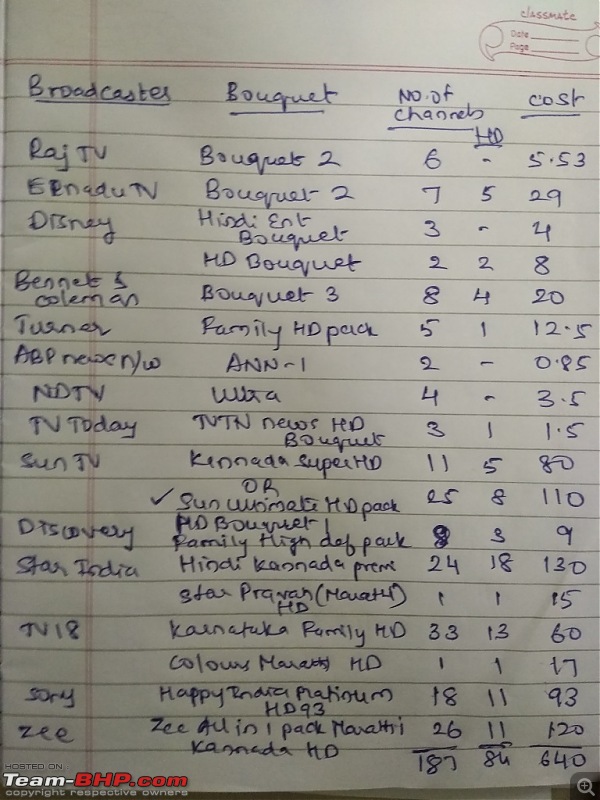 classmate
Date
Page
Broadcastes Bouquet No. of channels HD Cost
Raj TV Bouquet 2 6 - 5.53
EENadu TV Bouquet 2 7 5 29
Disney Hindi Ent Bouquet 3 - 4
HD Bouquet 2 2 8
Bennet & coleman Bouquet 3 8 4 20
Turner Family HD pack 5 1 12.5
ABP news n/w ANN-1 2 - 0.85
NDTV Ultra 4 - 3.5
TV Today TVTN news HD Bouquet 3 1 1.5
Sun TV Kannada Super HD 11 5 80
OR
✓ Sun Ultimate HD pack 25 8 110
Discovery HD Bouquet 1
Family High def pack 8 3 9
Star India Hindi Kannada premi 24 18 130
Star Pravah (Marathi) HD 1 1 15
TV18 Karnataka Family HD 33 13 60
Colours Marathi HD 1 1 17
Sony Happy India Platinum HD93 18 11 93
Zee Zee All in 1 pack Marathi Kannada HD 26 11 120
187 84 640
HOSTED ON
Team-BHP.com
copyright respective owners